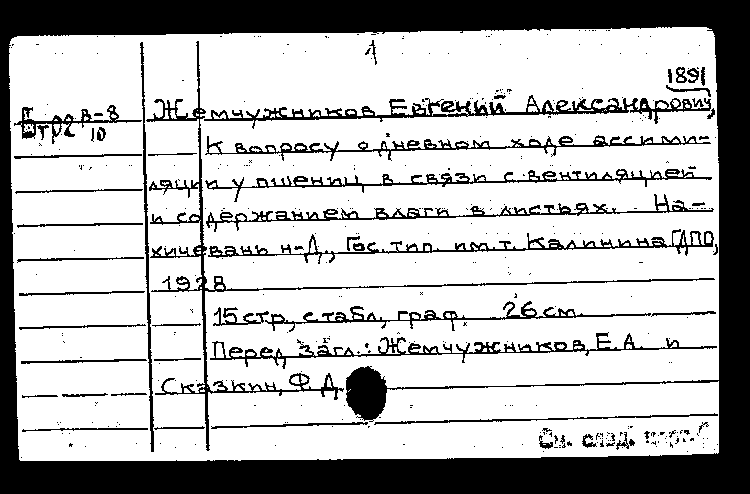 1
1891
Жемчужников, Евгений Александрович,
В-8
10
К вопросу о дневном ходе ассими-
ляции у пшениц в связи с вентиляцией
и содержанием влаги в листьях. На-
хичевань н-Д., Гос. тип. им. т. Калинина ГДПО,
1928
15 стр., с табл., граф. 26 см.
Перед загл.: Жемчужников, Е.А. и
Сказкин, Ф. Д.
См. след. карт.